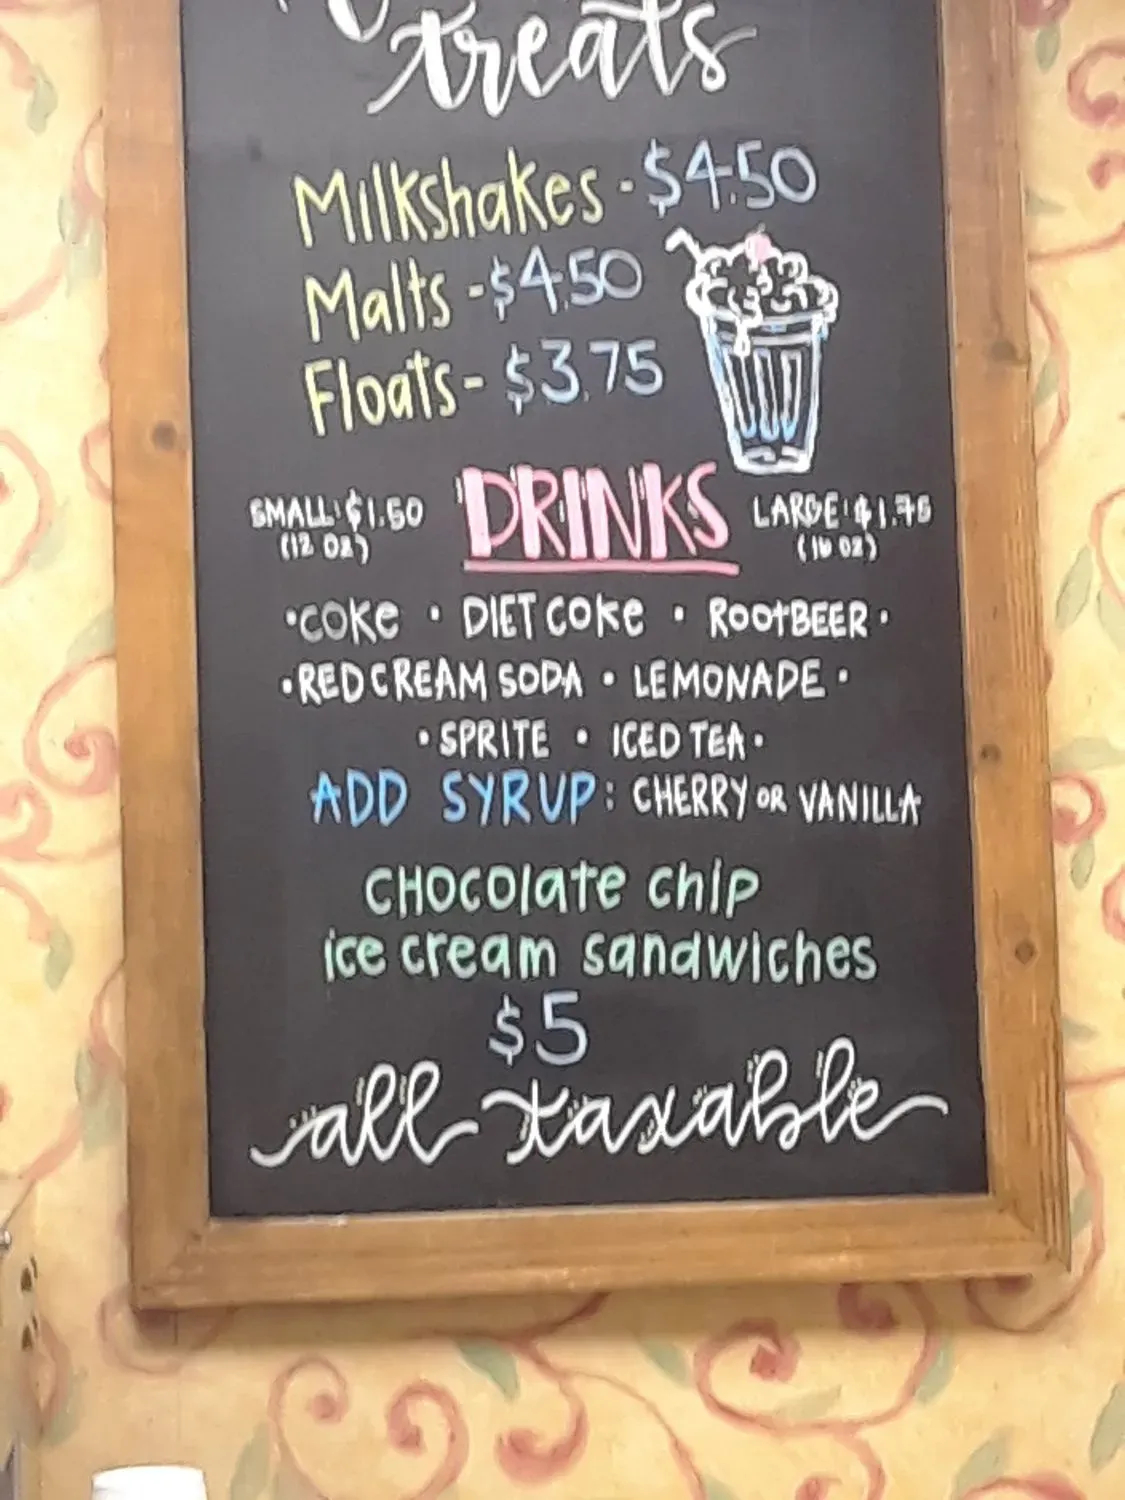 treats
Milkshakes - $4.50
Malts - $4.50
Floats - $3.75
DRINKS
SMALL: $1.50
(12 oz)
LARGE: $1.75
(16 oz)
• COKE • DIET COKE • ROOTBEER •
• RED CREAM SODA • LEMONADE •
• SPRITE • ICED TEA •
ADD SYRUP: CHERRY OR VANILLA
CHOCOlate chip
ice cream sandwiches
$5
all taxable